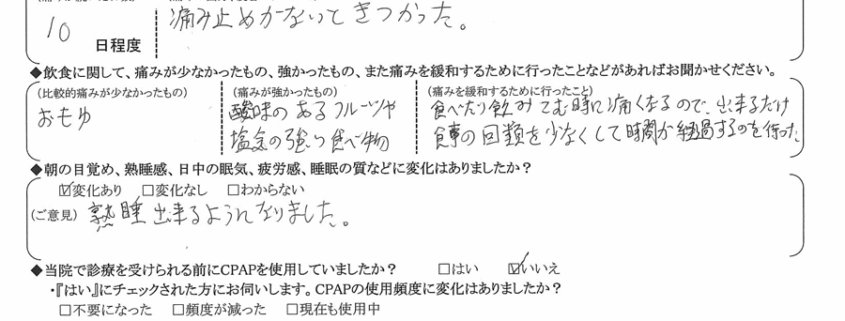 10
日程度
痛み止めがないときつかった。
◆飲食に関して、痛みが少なかったもの、強かったもの、また痛みを緩和するために行ったことなどがあればお聞かせください。
(比較的痛みが少なかったもの)
おもゆ
(痛みが強かったもの)
酸味のあるフルーツや
塩気の強い食べ物
(痛みを緩和するために行ったこと)
食べたり飲みこむ時に痛くなるので、出来るだけ
食事の回数を少なくして時間が経過するのを待った
◆朝の目覚め、熟睡感、日中の眠気、疲労感、睡眠の質などに変化はありましたか？
☑変化あり □変化なし □わからない
(ご意見) 熟睡出来るようになりました。
◆当院で診療を受けられる前にCPAPを使用していましたか？ □はい ☑いいえ
・『はい』にチェックされた方にお伺いします。CPAPの使用頻度に変化はありましたか？
□不要になった □頻度が減った □現在も使用中